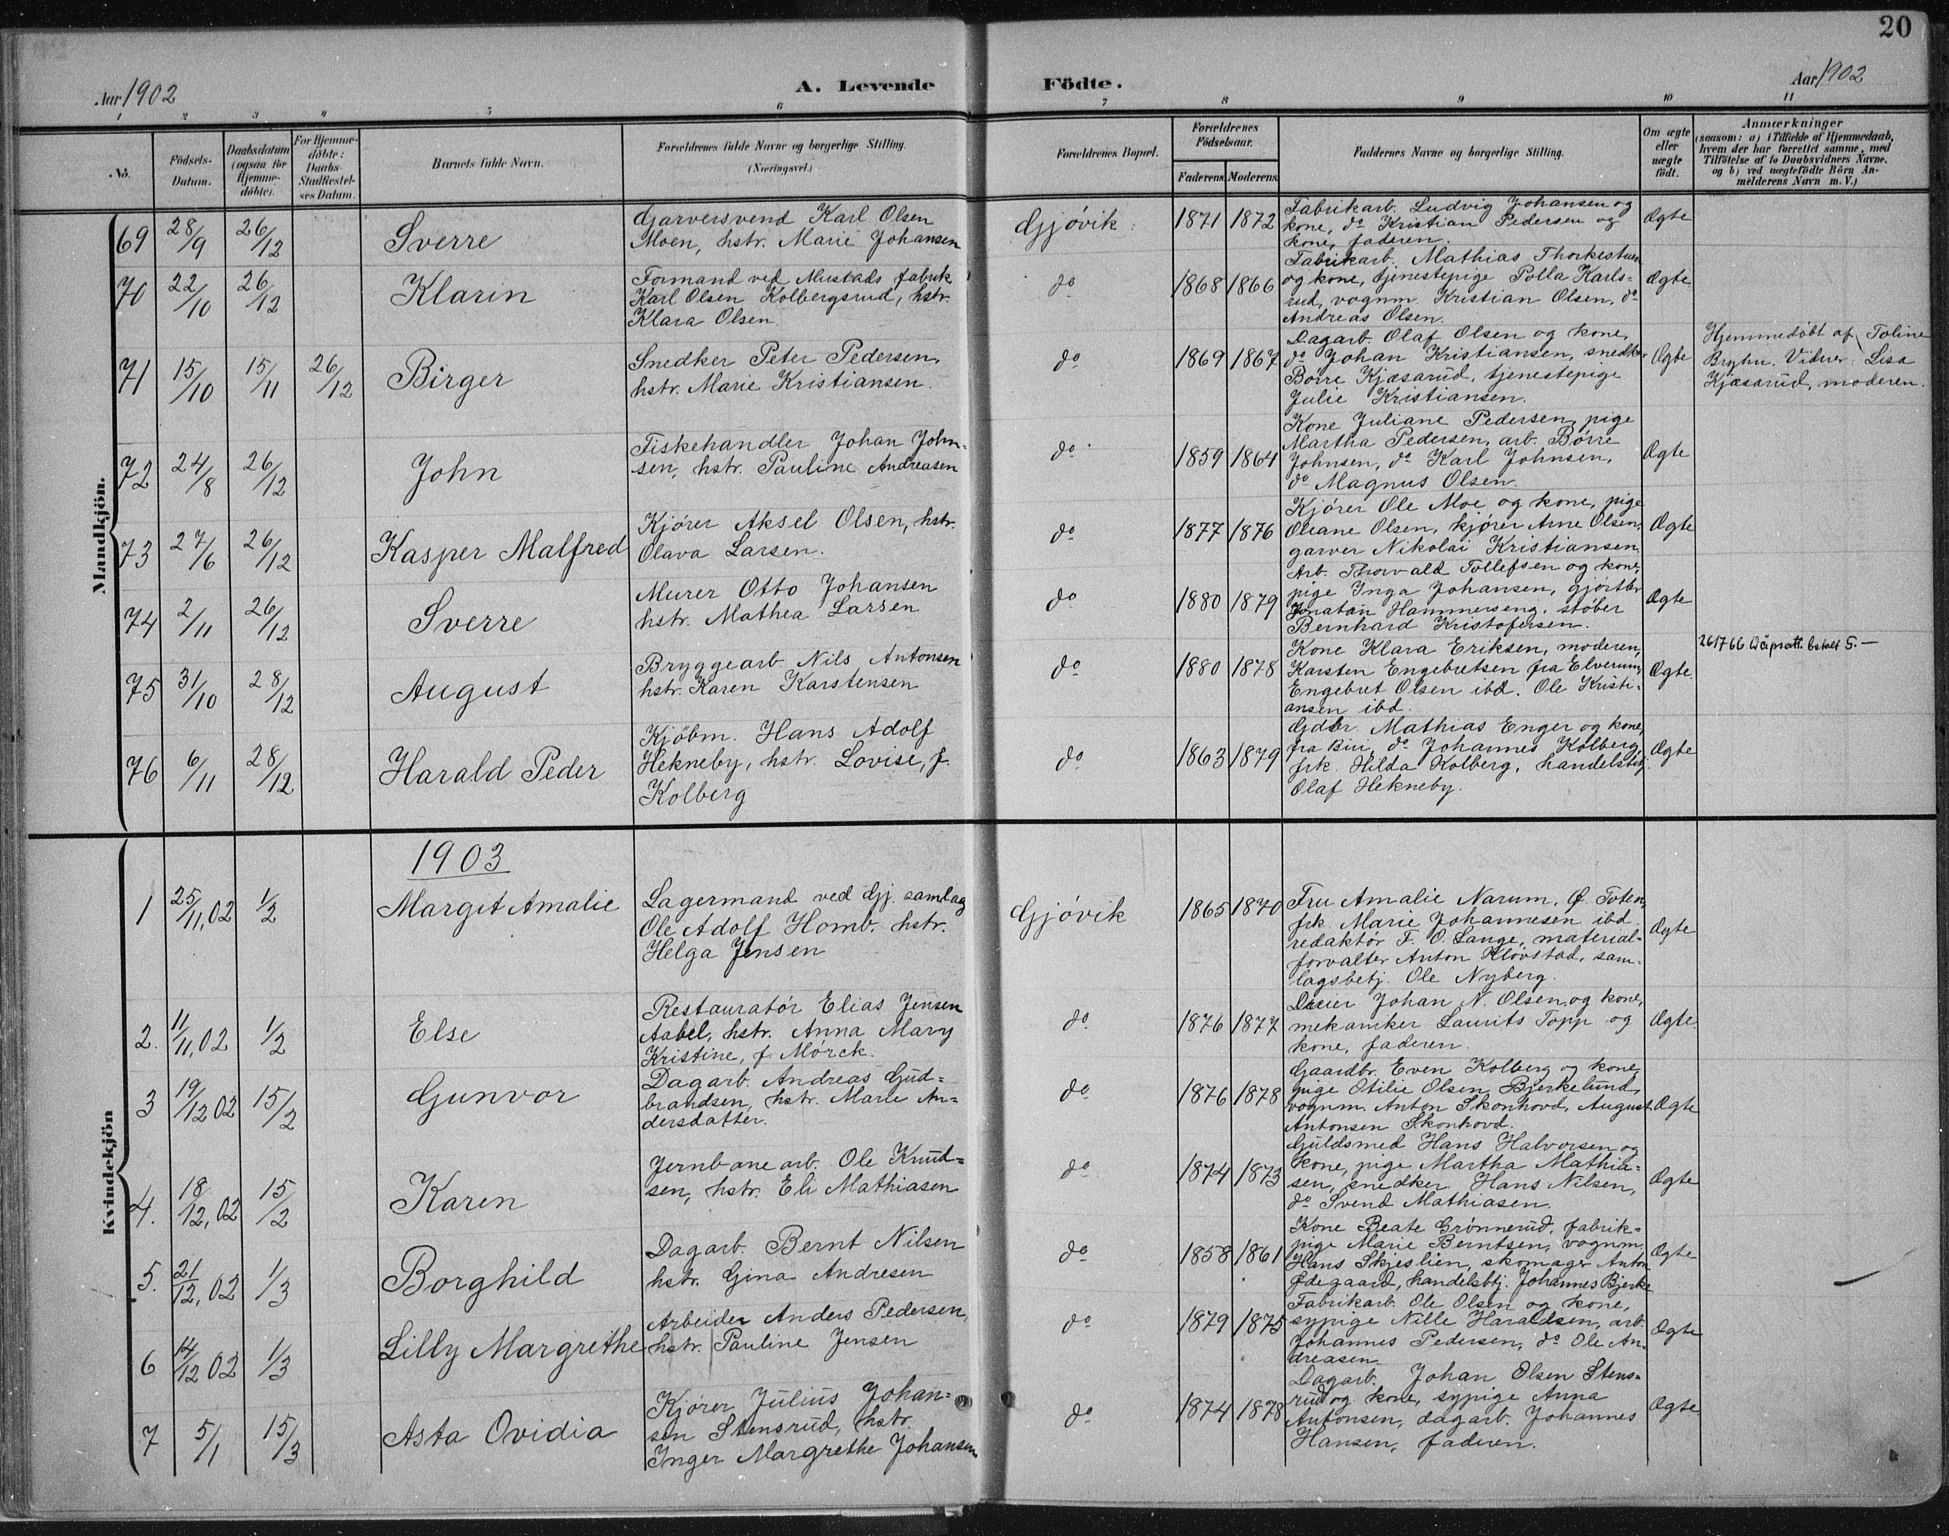 20
Aar 1902
A. Levende Födte.
Aar 1902
1 2 3 4 5 6 7 8 9 10 11
No.
Födsels-Datum.
Daabsdatum (ogsaa for Hjemme-döbte).
For Hjemme-döbte: Daabs-Stadfæstel-ses Datum.
Barnets fulde Navn.
Forældrenes fulde Navne og borgerlige Stilling.
(Næringsvei.)
Forældrenes Bopæl.
Forældrenes Födselsaar.
Faderens Moderens
Faddernes Navne og borgerlige Stilling.
Om ægte eller uægte födt.
Anmærkninger
(saasom: a) i Tilfælde af Hjemmedaab,
hvem der har forrettet samme, med
Tilföielse af to Daabsvidners Navne,
og b) ved uægtefödte Börn An-
melderens Navn m. V.)
Mandkjön.
69 28/9 26/12 Sverre
Garversvend Karl Olsen
Moen, hstr. Marie Johansen
Gjøvik 1871 1872
Fabrikarb. Ludvig Johansen og
kone, do Kristian Pedersen og
kone, faderen.
Ægte
70 22/10 26/12 Klarin
Formand ved Mustads fabrik
Karl Olsen Kolbergsrud, hstr.
Klara Olsen.
do 1868 1866
Fabrikarb. Mathias
og kone, tjenestepige Polla Karls-
rud, vognm. Kristian Olsen, do
Andreas Olsen.
Ægte
71 15/10 15/11 26/12 Birger
Snedker Peter Pedersen,
hstr. Marie Kristiansen.
do 1869 1867
Dagarb. Olaf Olsen og kone,
do Johan Kristiansen, snedker
Børre Kjæsarud, tjenestepige
Julie Kristiansen.
Ægte
Hjemmedøbt af Toline
Bryhn. Vidner: Lisa
Kjæsarud, moderen.
72 24/8 26/12 John
Fiskehandler Johan John-
sen, hstr. Pauline Andreasen
do 1859 1864
Kone Juliane Pedersen, pige
Martha Pedersen, arb. Børre
Johnsen, do Karl Johnsen,
do Magnus Olsen.
Ægte
73 27/6 26/12 Kasper Malfred
Kjører Aksel Olsen, hstr.
Olava Larsen.
do 1877 1876
Kjører Ole Moe og kone, pige
Oliane Olsen, kjører Arne Olsen,
garver Nikolai Kristiansen.
Ægte
74 2/11 26/12 Sverre
Murer Otto Johansen
hstr. Mathea Larsen
do 1880 1879
Arb. Thorvald Tollefsen og kone,
pige Inga Johansen, gjørtler
Jonatan Hammerseng, støber
Bernhard Kristofersen.
Ægte
75 31/10 28/12 August
Bryggearb. Nils Antonsen
hstr. Karen Karstensen
do 1880 1878
Kone Klara Eriksen, moderen,
Karsten Engebretsen fra Elverum,
Engebret Olsen ibd. Ole Kristi-
ansen ibd.
Ægte
26/7 66 5.—
76 6/11 28/12 Harald Peder
Kjøbm. Hans Adolf
Hekneby, hstr. Lovise, f.
Kolberg
do 1863 1879
Gdbr. Mathias Enger og kone,
fra Biri, do Johannes Kolberg,
frk. Hilda Kolberg, handelsbtj.
Olaf Hekneby.
Ægte
Kvindekjön
1903
1 25/11,02 1/2 Margit Amalie
Lagermand ved Gj. samlag
Ole Adolf Homb. hstr.
Helga Jensen
Gjøvik 1865 1870
Fru Amalie Narum. Ø. Toten,
frk. Marie Johannesen ibd.
redaktør F. O. Lange, material-
forvalter Anton Kløvstad, sam-
lagsbetj. Ole Nyberg.
Ægte
2. 11/11,02 1/2 Else
Restauratør Elias Jensen
Aabel, hstr. Anna Mary
Kristine, f. Mørck.
do 1876 1877
Johan N. Olsen og kone,
mekaniker Laurits Topp og
kone, faderen.
Ægte.
3 19/12 02 15/2 Gunvor
Dagarb. Andreas Gud-
brandsen, hstr. Marie An-
dersdatter.
do 1876 1878
Gaardbr. Even Kolberg og kone,
pige Otilie Olsen Bjerkelund,
vognm. Anton Skonhovd, August
Antonsen Skonhovd.
Ægte
4. 18/12,02 15/2 Karen
Jernbanearb. Ole Knud-
sen, hstr. Eli Mathiasen
do 1874 1873
Guldsmed Hans Halvorsen og
kone, pige Martha Mathia-
sen, snedker Hans Nilsen,
do Svend Mathiasen.
Ægte
5. 21/12,02 1/3 Borghild
Dagarb. Bernt Nilsen
hstr. Gina Andresen
do 1858 1861
Kone Beate Grønnerud, fabrik-
pige Marie Berntsen, vognm.
Hans Skjeslien, skomager Anton
Ødegaard, handelsbtj. Johannes Bjerke
Ægte
6 14/12 02 1/3 Lilly Margrethe
Arbeider Anders Pedersen,
hstr. Pauline Jensen
do 1879 1875
Fabrikarb. Ole Olsen og kone,
sypige Nille Haraldsen, arb.
Johannes Pedersen, do Ole An-
dreasen.
Ægte
7 5/1 15/3 Asta Ovidia
Kjører Julius Johan-
sen Stensrud, hstr.
Inger Margrethe Johansen
do 1874 1878
Dagarb. Johan Olsen Stens-
rud og kone, sypige Anna
Antonsen, dagarb. Johannes
Hansen, faderen.
Ægte.